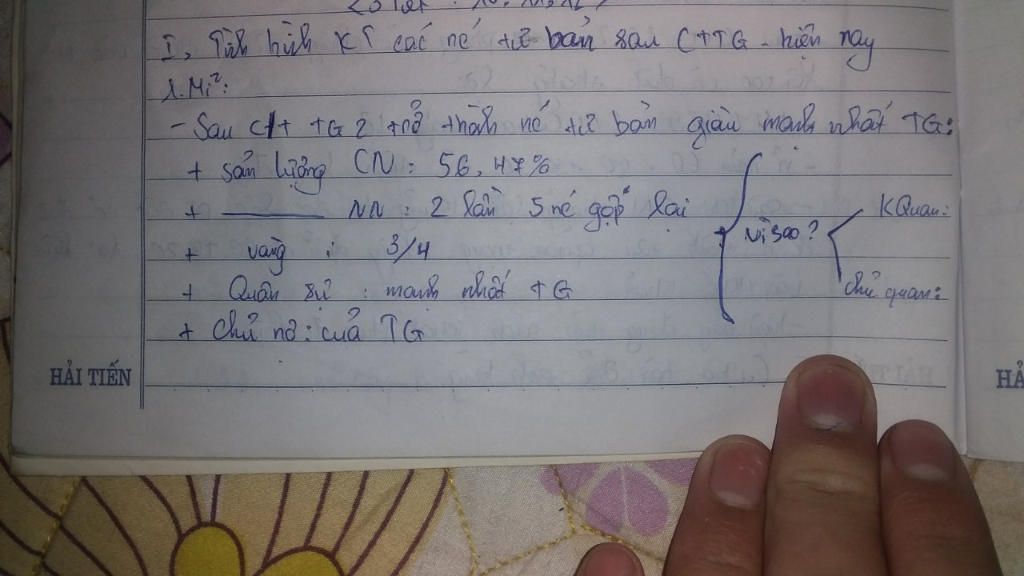 I, Tình hình KT các nc tư bản sau CTTG - hiện nay
1. Mĩ:
- Sau CTTG 2 trở thành nc tư bản giàu mạnh nhất TG:
+ sản lượng CN: 56,47%
+ ——— NN: 2 lần 5 nc gộp lại
+ vàng : 3/4
+ Quân sự : mạnh nhất TG
+ chủ nợ: của TG
Vì sao?
KQuan:
chủ quan:
HẢI TIẾN
HẢ